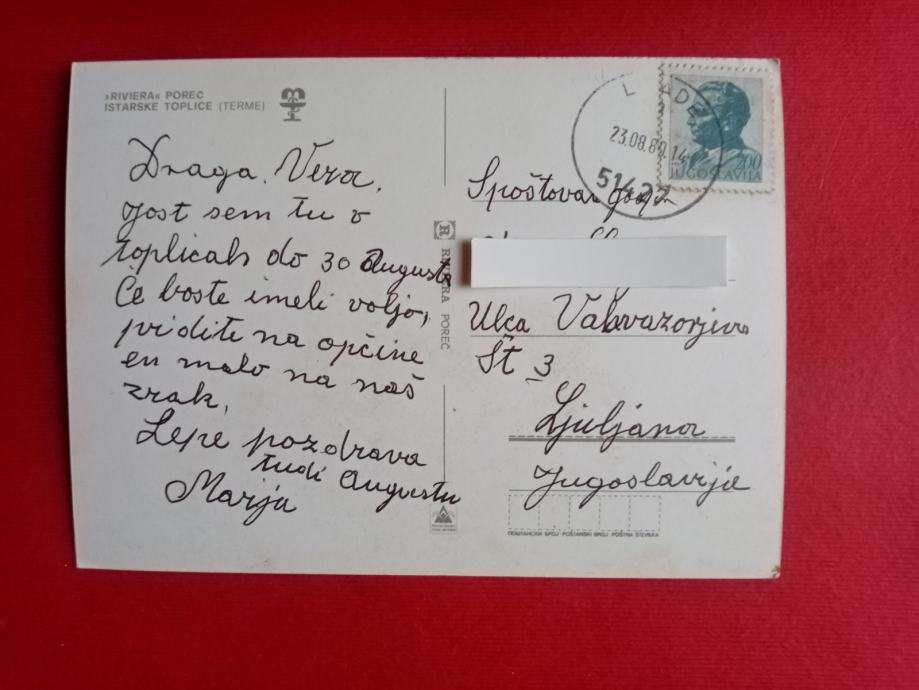 »RIVIERA« POREČ
ISTARSKE TOPLICE (TERME)
Draga Vera,
Jost sem tu v
toplicah do 30 Augusta
Če boste imeli voljo,
pridite na opčine
en malo na naš
zrak,
Lepe pozdrava
tudi Augustu
Marija
RIVIERA POREČ
23.08.8
14
200
JUGOSLAVIJA
Ulca
Št 3
Ljubljana
Jugoslavije
ПОШТАНСКИ БРОЈ POŠTANSKI BROJ POŠTNA ŠTEVILKA